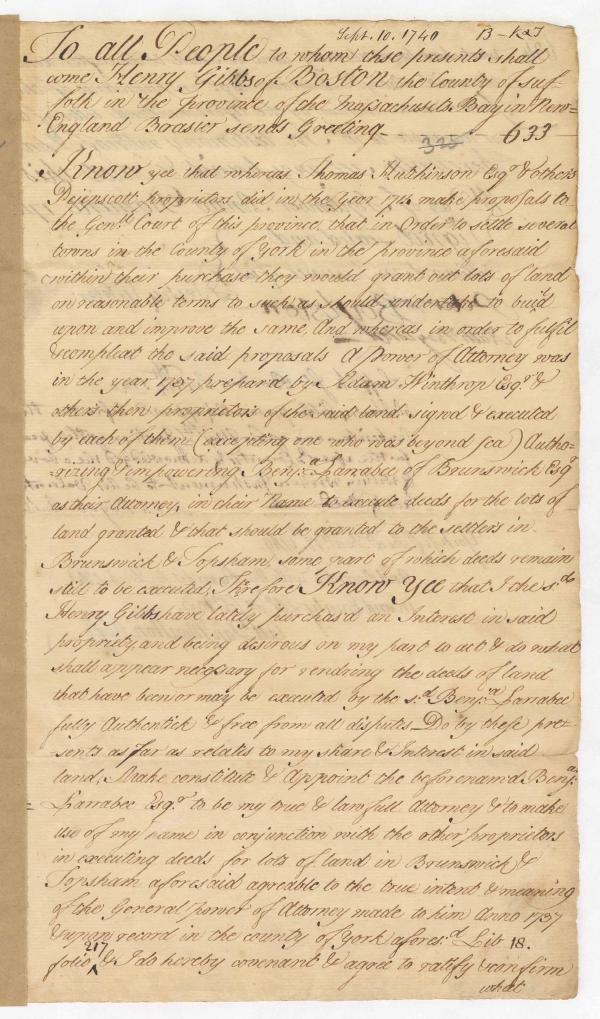 Sept. 10. 1740 B-K&J
To all People to whom these presents shall
come Henry Gibbs of Boston the County of suf-
folk in the province of the Massachusets Bay in New=
England Brasier sends Greeting 325 633
Know yee that whereas Thomas Hutchinson Esqr. & others
Pejepscott proprietors did in the Year 1714 make proposals to
the Genll. Court of this province that in Order to settle several
towns in the County of York in the province aforesaid
within their purchase they would grant out lots of land
on reasonable terms to such as should undertake to build
upon and improve the same, And whereas in order to fulfil
& compleat the said proposals A Power of Attorney was
in the year 1737 prepard by Adam Winthrop Esqr. &
others then proprietors of the said land signd & executed
by each of them (excepting one who was beyond sea) Autho-
rizing & impowering Benja. Larrabee of Brunswick Esqr
as their Attorney, in their Name to execute deeds for the lots of
land granted & that should be granted to the settlers in
Brunswick & Topsham, some part of which deeds remain
still to be executed, Therefore Know Yee that I the sd.
Henry Gibbs have lately purchas'd an Interest in said
propriety, and being desirous on my part to act & do what
shall appear necessary for rendring the deeds of land
that have been or may be executed by the sd. Benja. Larrabee
fully Authentick & free from all disputes Do by these pre-
sents as far as relates to my share & Interest in said
land, Make constitute & Appoint the beforenamd Benja.
Larrabee Esqr. to be my true & lawfull Attorney & to make
use of my name in conjunction with the other proprietors
in executing deeds for lots of land in Brunswick &
Topsham aforesaid agreable to the true intent & meaning
of the General power of Attorney made to him Anno 1737
& upon record in the county of York aforesd. Lib 18.
folio 217 & I do hereby covenant & agree to ratify & confirm
what